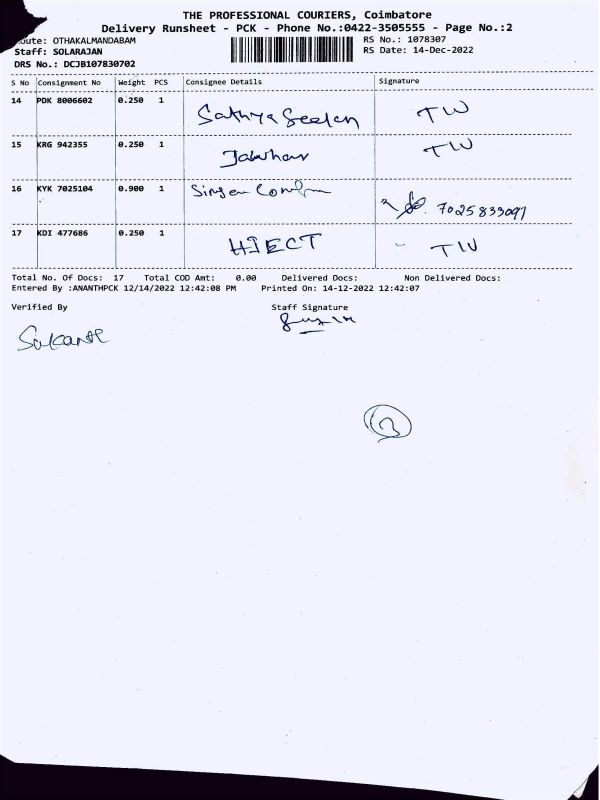 THE PROFESSIONAL COURIERS, Coimbatore
Delivery Runsheet - PCK - Phone No.:0422-3505555 - Page No.:2
oute: OTHAKALMANDABAM
RS No.: 1078307
Staff: SOLARAJAN
RS Date: 14-Dec-2022
DRS No.: DCJB107830702
S No Consignment No Weight PCS Consignee Details Signature
14 PDK 8006602 0.250 1 Sathya Seelan TW
15 KRG 942355 0.250 1 TW
16 KYK 7025104 0.900 1 7025833097
17 KDI 477686 0.250 1 HIECT TW
Total No. Of Docs: 17 Total COD Amt: 0.00 Delivered Docs: Non Delivered Docs:
Entered By :ANANTHPCK 12/14/2022 12:42:08 PM Printed On: 14-12-2022 12:42:07
Verified By Staff Signature